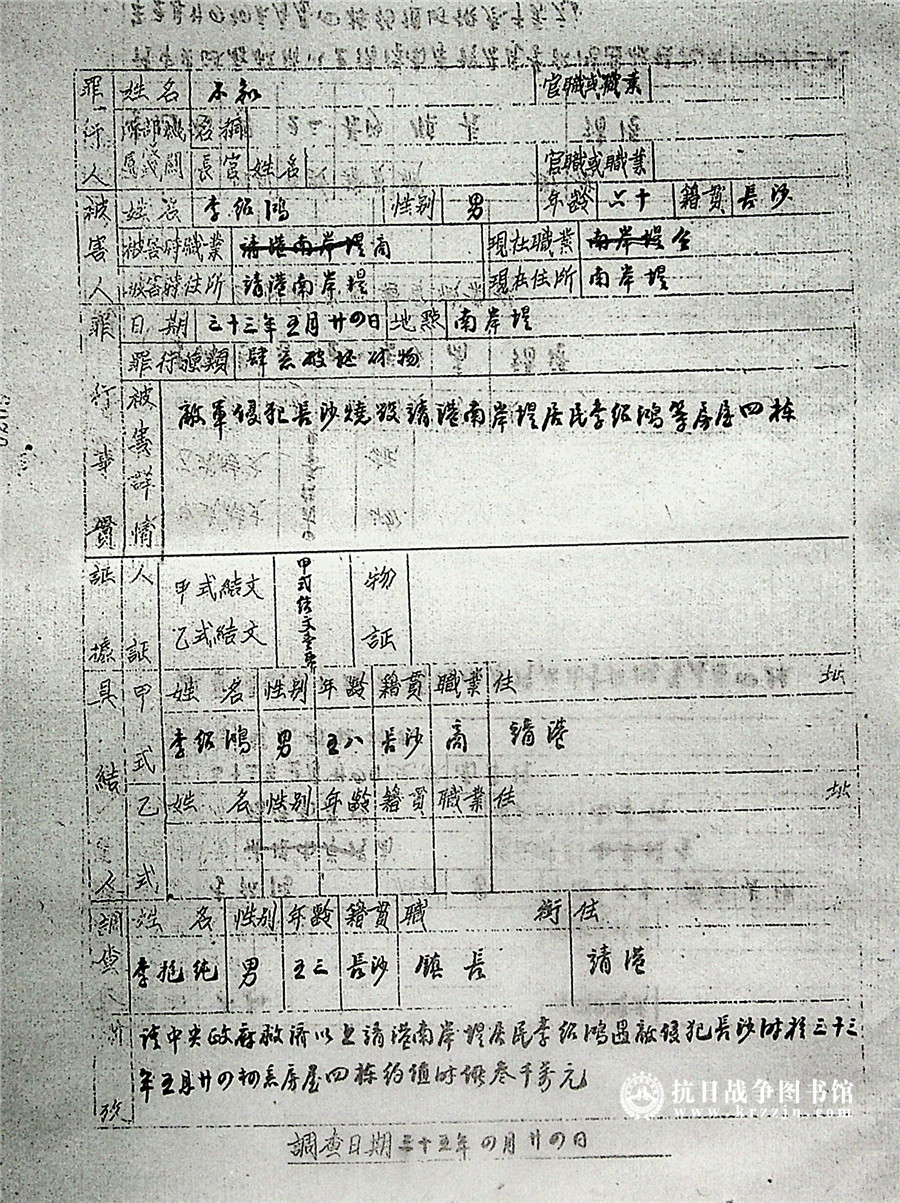 罪行人 姓名 不知 官職或職業
隊部或機關 名稱
長官 姓名 官職或職業
被害人 姓名 李紹鴻 性別 男 年齡 六十 籍貫 長沙
被害時職業 靖港南岸堤商 現在職業 南岸堤仝
被害時住所 靖港南岸堤 現在住所 南岸堤
罪行事實 日期 三十三年五月廿四日 地點 南岸堤
罪行種類 肆意破坏财物
被害詳情 敵軍侵犯長沙燒毀靖港南岸堤居民李紹鴻等房屋四栋
証據 人証 甲式結文 乙式結文 甲式结文壹 物証
具結人 甲式 姓名 性別 年齡 籍貫 職業 住址
李紹鴻 男 五八 長沙 商 靖港
乙式 姓名 性別 年齡 籍貫 職業 住址
調查人 姓名 性別 年齡 籍貫 職銜 住
李 純 男 五三 長沙 鎮長 靖港
请中央政府救济以上靖港南岸堤居民李紹鴻遇敵侵犯長沙時於三十三
年五月廿四 房屋四栋约值时 叁千萬元
調查日期三十五年四月廿四日
抗日战争图书馆
www.krzzjn.com